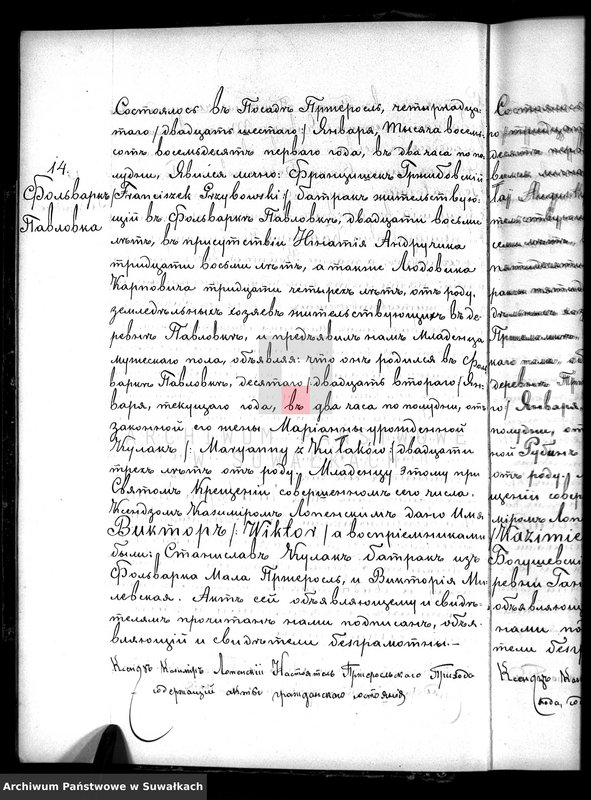 14.
Фольваркъ
Павловка
Состоялось въ Посадѣ Пржеросль, четырнадца-
таго /двадцать шестаго/ Января, тысяча восемь-
сотъ восемьдесятъ перваго года, въ два часа по по-
лудни, Явился лично: Францишекъ Гржибовскій
/Franciszek Grzybowski/ батракъ жительствую-
щій въ Фольваркѣ Павловкѣ, двадцати восьми
лѣтъ, въ присутствіи Игнатія Андручика
тридцати восьми лѣтъ, а также Людовика
Карповича тридцати четырехъ лѣтъ, отъ роду,
земледѣльныхъ хозяевъ жительствующихъ въ де-
ревнѣ Павловкѣ, и предъявилъ намъ Младенца
мужескаго пола, объявляя: что онъ родился въ Фоль-
варкѣ Павловкѣ, десятаго /двадцать втораго/ Ян-
варя, текущаго года, въ два часа по полудни, отъ
законной его жены Маріанны урожденной
Кулакъ /: Maryanny z Kułaków: / двадцати
трехъ лѣтъ отъ роду. Младенцу этому при
Святомъ Крещеніи совершенномъ сего числа.
Ксендзомъ Казиміромъ Лопенскимъ дано Имя
Викторъ /: Wiktor/ а воспріемниками
были: Станиславъ Кулакъ батракъ изъ
Фольварка Мала Пржеросль, и Викторія Ми-
левская. Актъ сей объявляющему и свидѣ-
телямъ прочитанъ нами подписанъ, объя-
вляющій и свидѣтели безграмотны.—
Ксендзъ Казиміръ Лопенскій Настоятель Пржерольскаго Прихода
содержащій акты гражданскаго состоянія
ARCHIWUM PAŃSTWOWE
W SUWAŁKACH
Archiwum Państwowe w Suwałkach